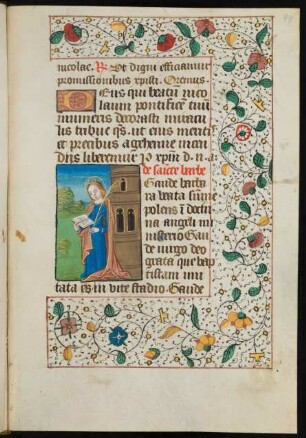 nicolae. R. Ut digni efficiamur
promissionibus xpisti. Oremus.
Deus qui beatum nico
laum pontificem tuum
innumeris decorasti miracu
lis tribue qs. ut eius meritis
et precibus a gehenne incen
diis liberemur P xpm d. n. a
de saincte barbe
Gaude barba
ra beata summe
polens in doctri
na angeli mi
nisterio Gau
de virgo deo
grata que bap
tistam imi
tata es in vite stadio. Gaude